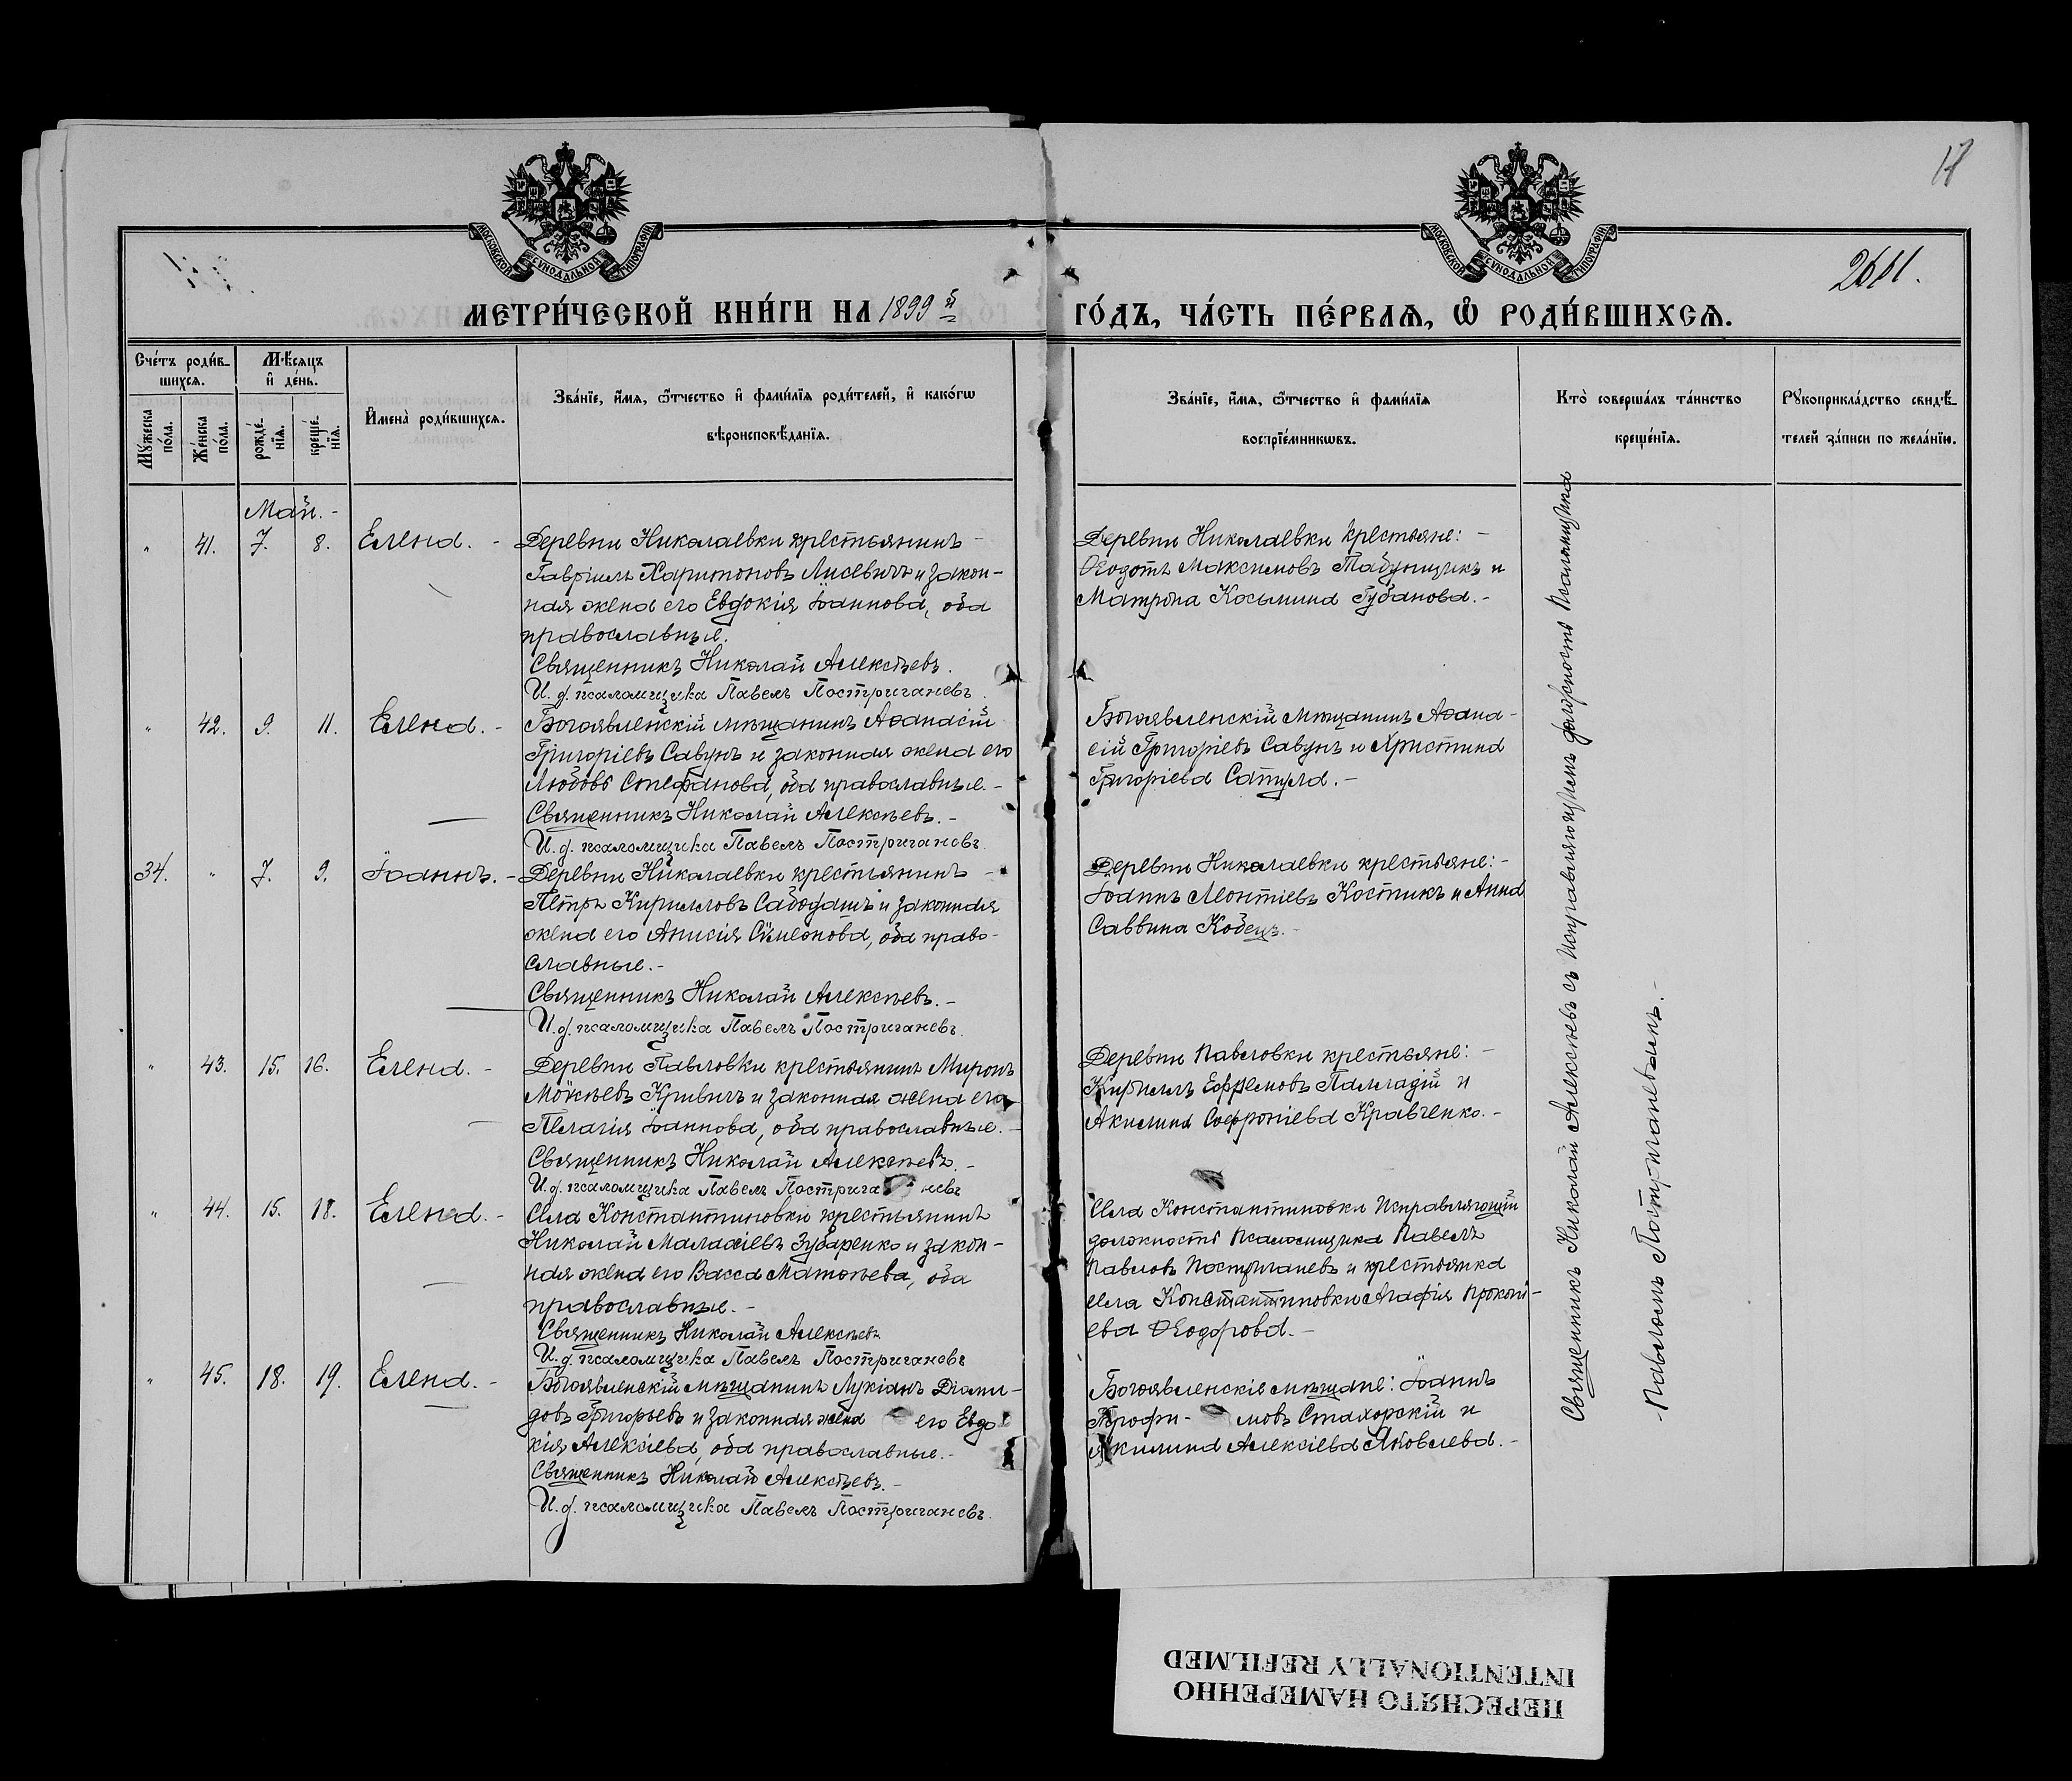 17
2661.
МОСКОВСКОЙ СѴНОДАЛЬНОЙ ТИПОГРАФІИ
МОСКОВСКОЙ СѴНОДАЛЬНОЙ ТИПОГРАФІИ
МЕТРИ́ЧЕСКОЙ КНИ́ГИ НА 1899 й
ГО́ДЪ, ЧА́СТЬ ПЕ́РВАѦ, Ѡ РОДИ́ВШИХСѦ.
Сче́тъ роди́в-
шихсѧ.
Мꙋ́жеска по́ла.
Же́нска по́ла.
Мѣ́сѧцъ
и҆ де́нь.
рожде́-
нїѧ.
креще́-
нїѧ.
И҆мена̀ роди́вшихсѧ.
Зва́нїе, и҆́мѧ, ѻ҆́тчество и҆ фами́лїѧ роди́телей, и҆ како́гѡ
вѣроисповѣ́данїѧ.
Зва́нїе, и҆́мѧ, ѻ҆́тчество и҆ фами́лїѧ
воспрїе́мникѡвъ.
Кто̀ соверша́лъ та́инство
креще́нїѧ.
Рꙋкоприкла́дство свидѣ́-
телей за́писи по жела́нїю.
Май.-
" 41. 7. 8. Елена. -
Деревни Николаевки крестьянинъ -
Гавріилъ Харитоновъ Лисевичъ и закон-
ная жена его Евдокія Іоаннова, оба
православные.
Священникъ Николай Алексѣевъ.
И. д. псаломщика Павелъ Постригачевъ.
Деревни Николаевки крестьяне: -
Ѳеодотъ Максимовъ Табунщикъ и
Матрона Косьмина Губанова.-
" 42. 9. 11. Елена. -
Богоявленскій мѣщанинъ Аѳанасій
Григоріевъ Савунъ и законная жена его
Любовь Стефанова, оба православные.-
Священникъ Николай Алексѣевъ.-
И. д. псаломщика Павелъ Постригачевъ.
Богоявленскій Мѣщанинъ Аѳана-
сій Григоріевъ Савунъ и Христина
Григоріева Сатула.-
34. " 7. 9. Іоаннъ. -
Деревни Николаевки крестьянинъ -
Петръ Кирилловъ Сабодашъ и законная
жена его Анисія Сѵмеонова, оба право-
славные.-
Священникъ Николай Алексѣевъ.-
И. д. псаломщика Павелъ Постригачевъ.
Деревни Николаевки крестьяне:-
Іоаннъ Леонтіевъ Костикъ и Анна
Саввина Кобецъ.-
" 43. 15. 16. Елена. -
Деревни Павловки крестьянинъ Миронъ
Мокѣевъ Кривичъ и законная жена его
Пелагія Іоаннова, оба православные.-
Священникъ Николай Алексѣевъ.-
И. д. псаломщика Павелъ Постригачевъ
Деревни Павловки крестьяне: -
Кириллъ Ефремовъ Палладій и
Акилина Софроніева Кравченко.-
" 44. 15. 18. Елена. -
Села Константиновки крестьянинъ
Николай Малахіевъ Зубаренко и закон-
ная жена его Васса Матѳеева, оба
православные.-
Священникъ Николай Алексѣевъ
И. д. псаломщика Павелъ Постригачевъ
Села Константиновки Исправляющій
должность Псаломщика Павелъ
Павловъ Постригачевъ и крестьянка
села Константиновки Агафія Прокопі-
ева Ѳеодорова.-
" 45. 18. 19. Елена. -
Богоявленскій мѣщанинъ Лукіанъ Діоми-
довъ Григорьевъ и законная жена его Евдо-
кія Алексіева, оба православные.-
Священникъ Николай Алексѣевъ.-
И. д. псаломщика Павелъ Постригачевъ.
Богоявленскіе мѣщане: Іоаннъ
Трофи- мовъ Стахорскій и
Акилина Алексіева Яковлева.-
Священникъ Николай Алексѣевъ съ Исправляющимъ должность Псаломщика
-Павломъ Постригачевымъ.-
ПЕРЕСНЯТО НАМЕРЕННО
INTENTIONALLY REFILMED